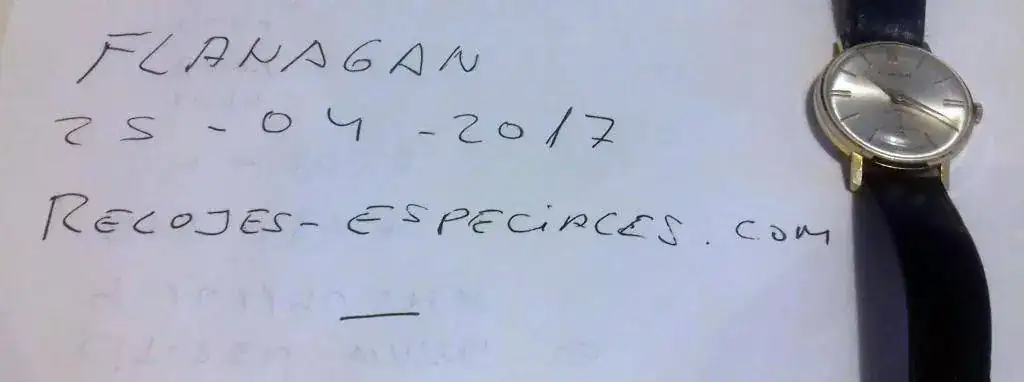 FLANAGAN
25-04-2017
RELOJES-ESPECIALES.COM